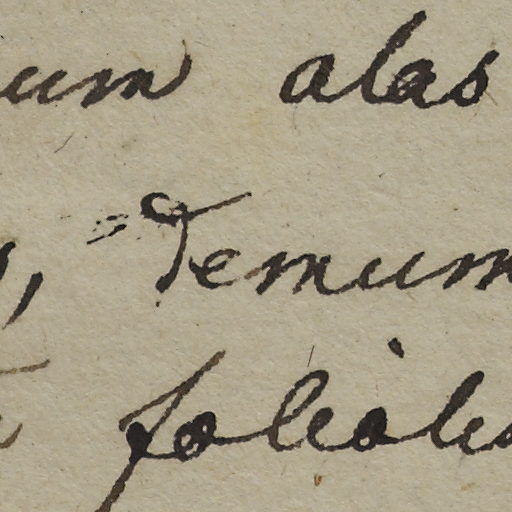 um alas
, demum
foliolis